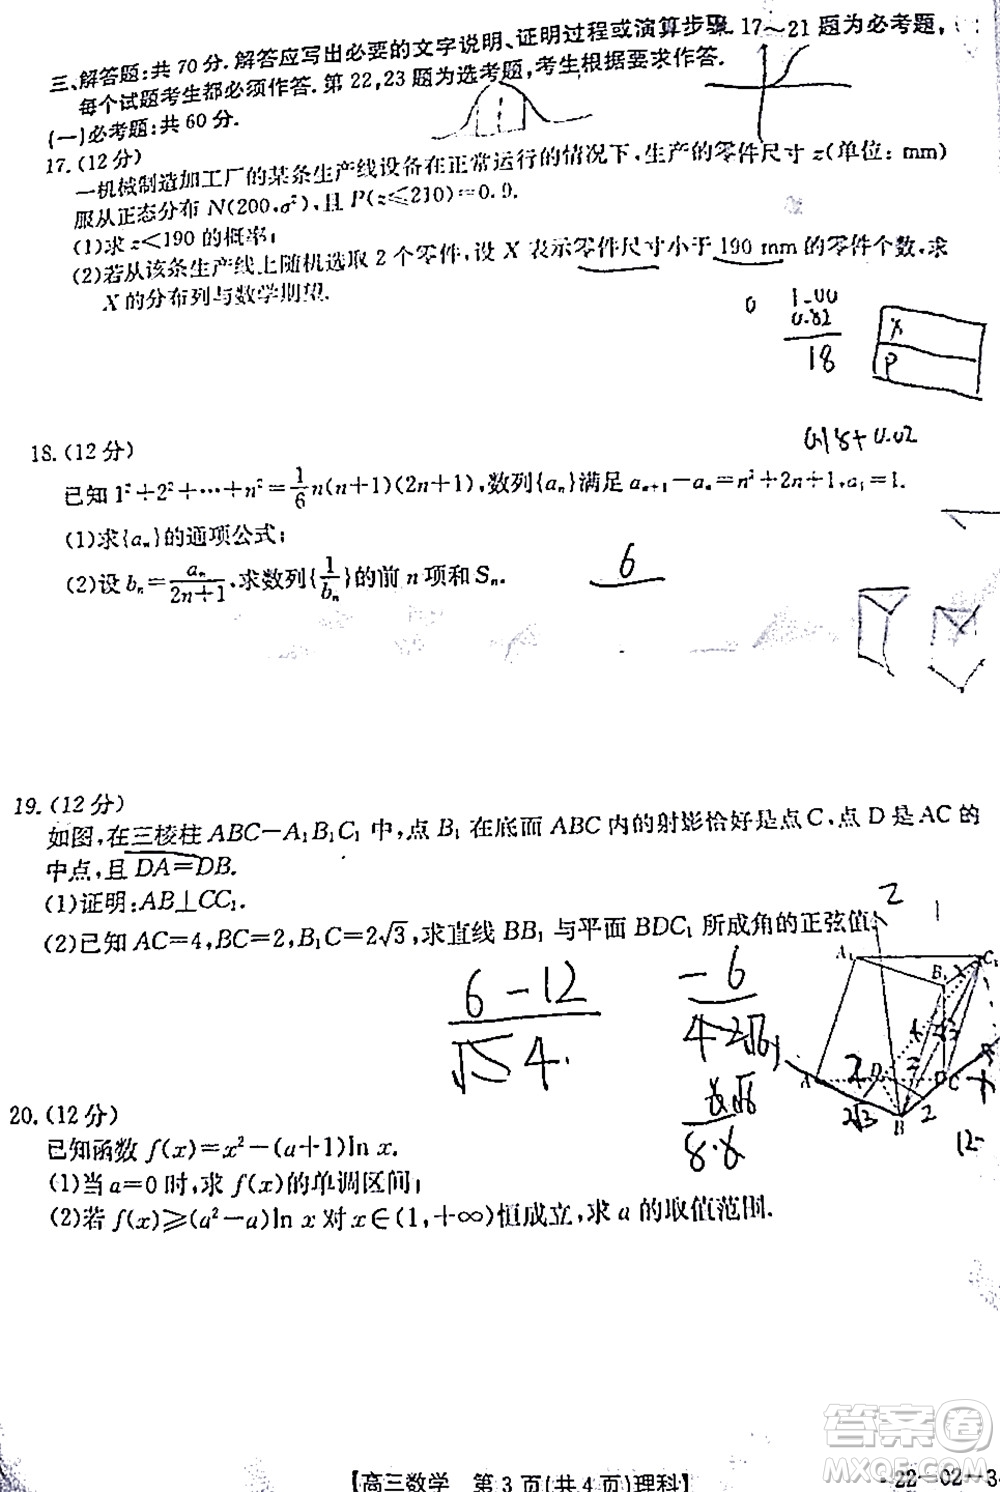 三、解答题:共 70 分.解答应写出必要的文字说明、证明过程或演算步骤.17~21 题为必考题,
每个试题考生都必须作答.第 22,23 题为选考题,考生根据要求作答.
(一)必考题:共 60 分.
17.(12 分)
一机械制造加工厂的某条生产线设备在正常运行的情况下,生产的零件尺寸 z(单位: mm)
服从正态分布 N(200,σ²),且 P(z≤210)=0.9.
(1)求 z<190 的概率;
(2)若从该条生产线上随机选取 2 个零件,设 X 表示零件尺寸小于 190 mm 的零件个数,求
X 的分布列与数学期望.
0
1.00
0.82
18
X
P
0.18+0.02
18.(12 分)
已知 1²+2²+⋯+n²=1/6 n(n+1)(2n+1),数列{aₙ}满足 aₙ₊₁-aₙ=n²+2n+1,a₁=1.
(1)求{aₙ}的通项公式;
(2)设 bₙ=aₙ/(2n+1),求数列{1/bₙ}的前 n 项和 Sₙ.
6
19.(12 分)
如图,在三棱柱 ABC-A₁B₁C₁ 中,点 B₁ 在底面 ABC 内的射影恰好是点 C,点 D 是 AC 的
中点,且 DA=DB.
(1)证明:AB⊥CC₁.
(2)已知 AC=4,BC=2,B₁C=2√3,求直线 BB₁ 与平面 BDC₁ 所成角的正弦值.
2
1
A₁
B₁
C₁
6-12
√5 4.
-6
4·2√6
8·8
A
D
C
B
2√3
2
12-
20.(12 分)
已知函数 f(x)=x²-(a+1)ln x.
(1)当 a=0 时,求 f(x)的单调区间;
(2)若 f(x)≥(a²-a)ln x 对 x∈(1,+∞)恒成立,求 a 的取值范围.
答案卷
【高三数学 第 3 页(共 4 页)理科】
·22-02-3